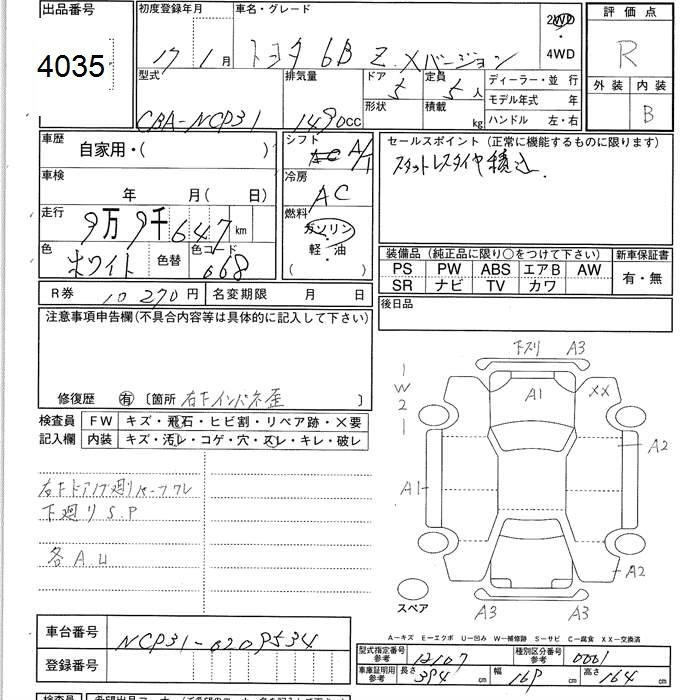 出品番号 初度登録年月 車名・グレード 2WD 評価点
4035 17 1月 トヨタ bB Z.Xバージョン 4WD R
型式 排気量 ドア 定員 ディーラー・並行 外装 内装
CBA-NCP31 1490cc 5 5人 モデル年式 年 B
形状 積載 kg ハンドル 左・右
車歴 自家用・( ) シフト A/T セールスポイント(正常に機能するものに限ります)
車検 年 月( 日) 冷房 AC スタットレスタイヤ積込.
走行 9万9千647km 燃料 ガソリン
色 ホワイト 色替 色コード 068 軽・油 ( )
装備品(純正品に限り○をつけて下さい) 新車保証書
PS PW ABS エアB AW 有・無
SR ナビ TV カワ
R券 10270円 名変期限 月 日 後日品
注意事項申告欄(不具合内容等は具体的に記入して下さい)
修復歴 有 〔箇所 右下インパネ歪 〕
検査員 FW キズ・飛石・ヒビ割・リペア跡・×要
記入欄 内装 キズ・汚レ・コゲ・穴・スレ・キレ・破レ
下廻りS.P
各A.U
1
W
2
1
下スリ A3
A1 XX
A2
A1
A2
スペア A3 A3
A―キズ E―エクボ U―凹み W―補修跡 S―サビ C―腐食 XX―交換済
車台番号 NCP31-0209534
登録番号
型式指定番号 参考 12107 種別区分番号 参考 0001
車庫証明用 参考 長さ 394cm 幅 169cm 高さ 164cm